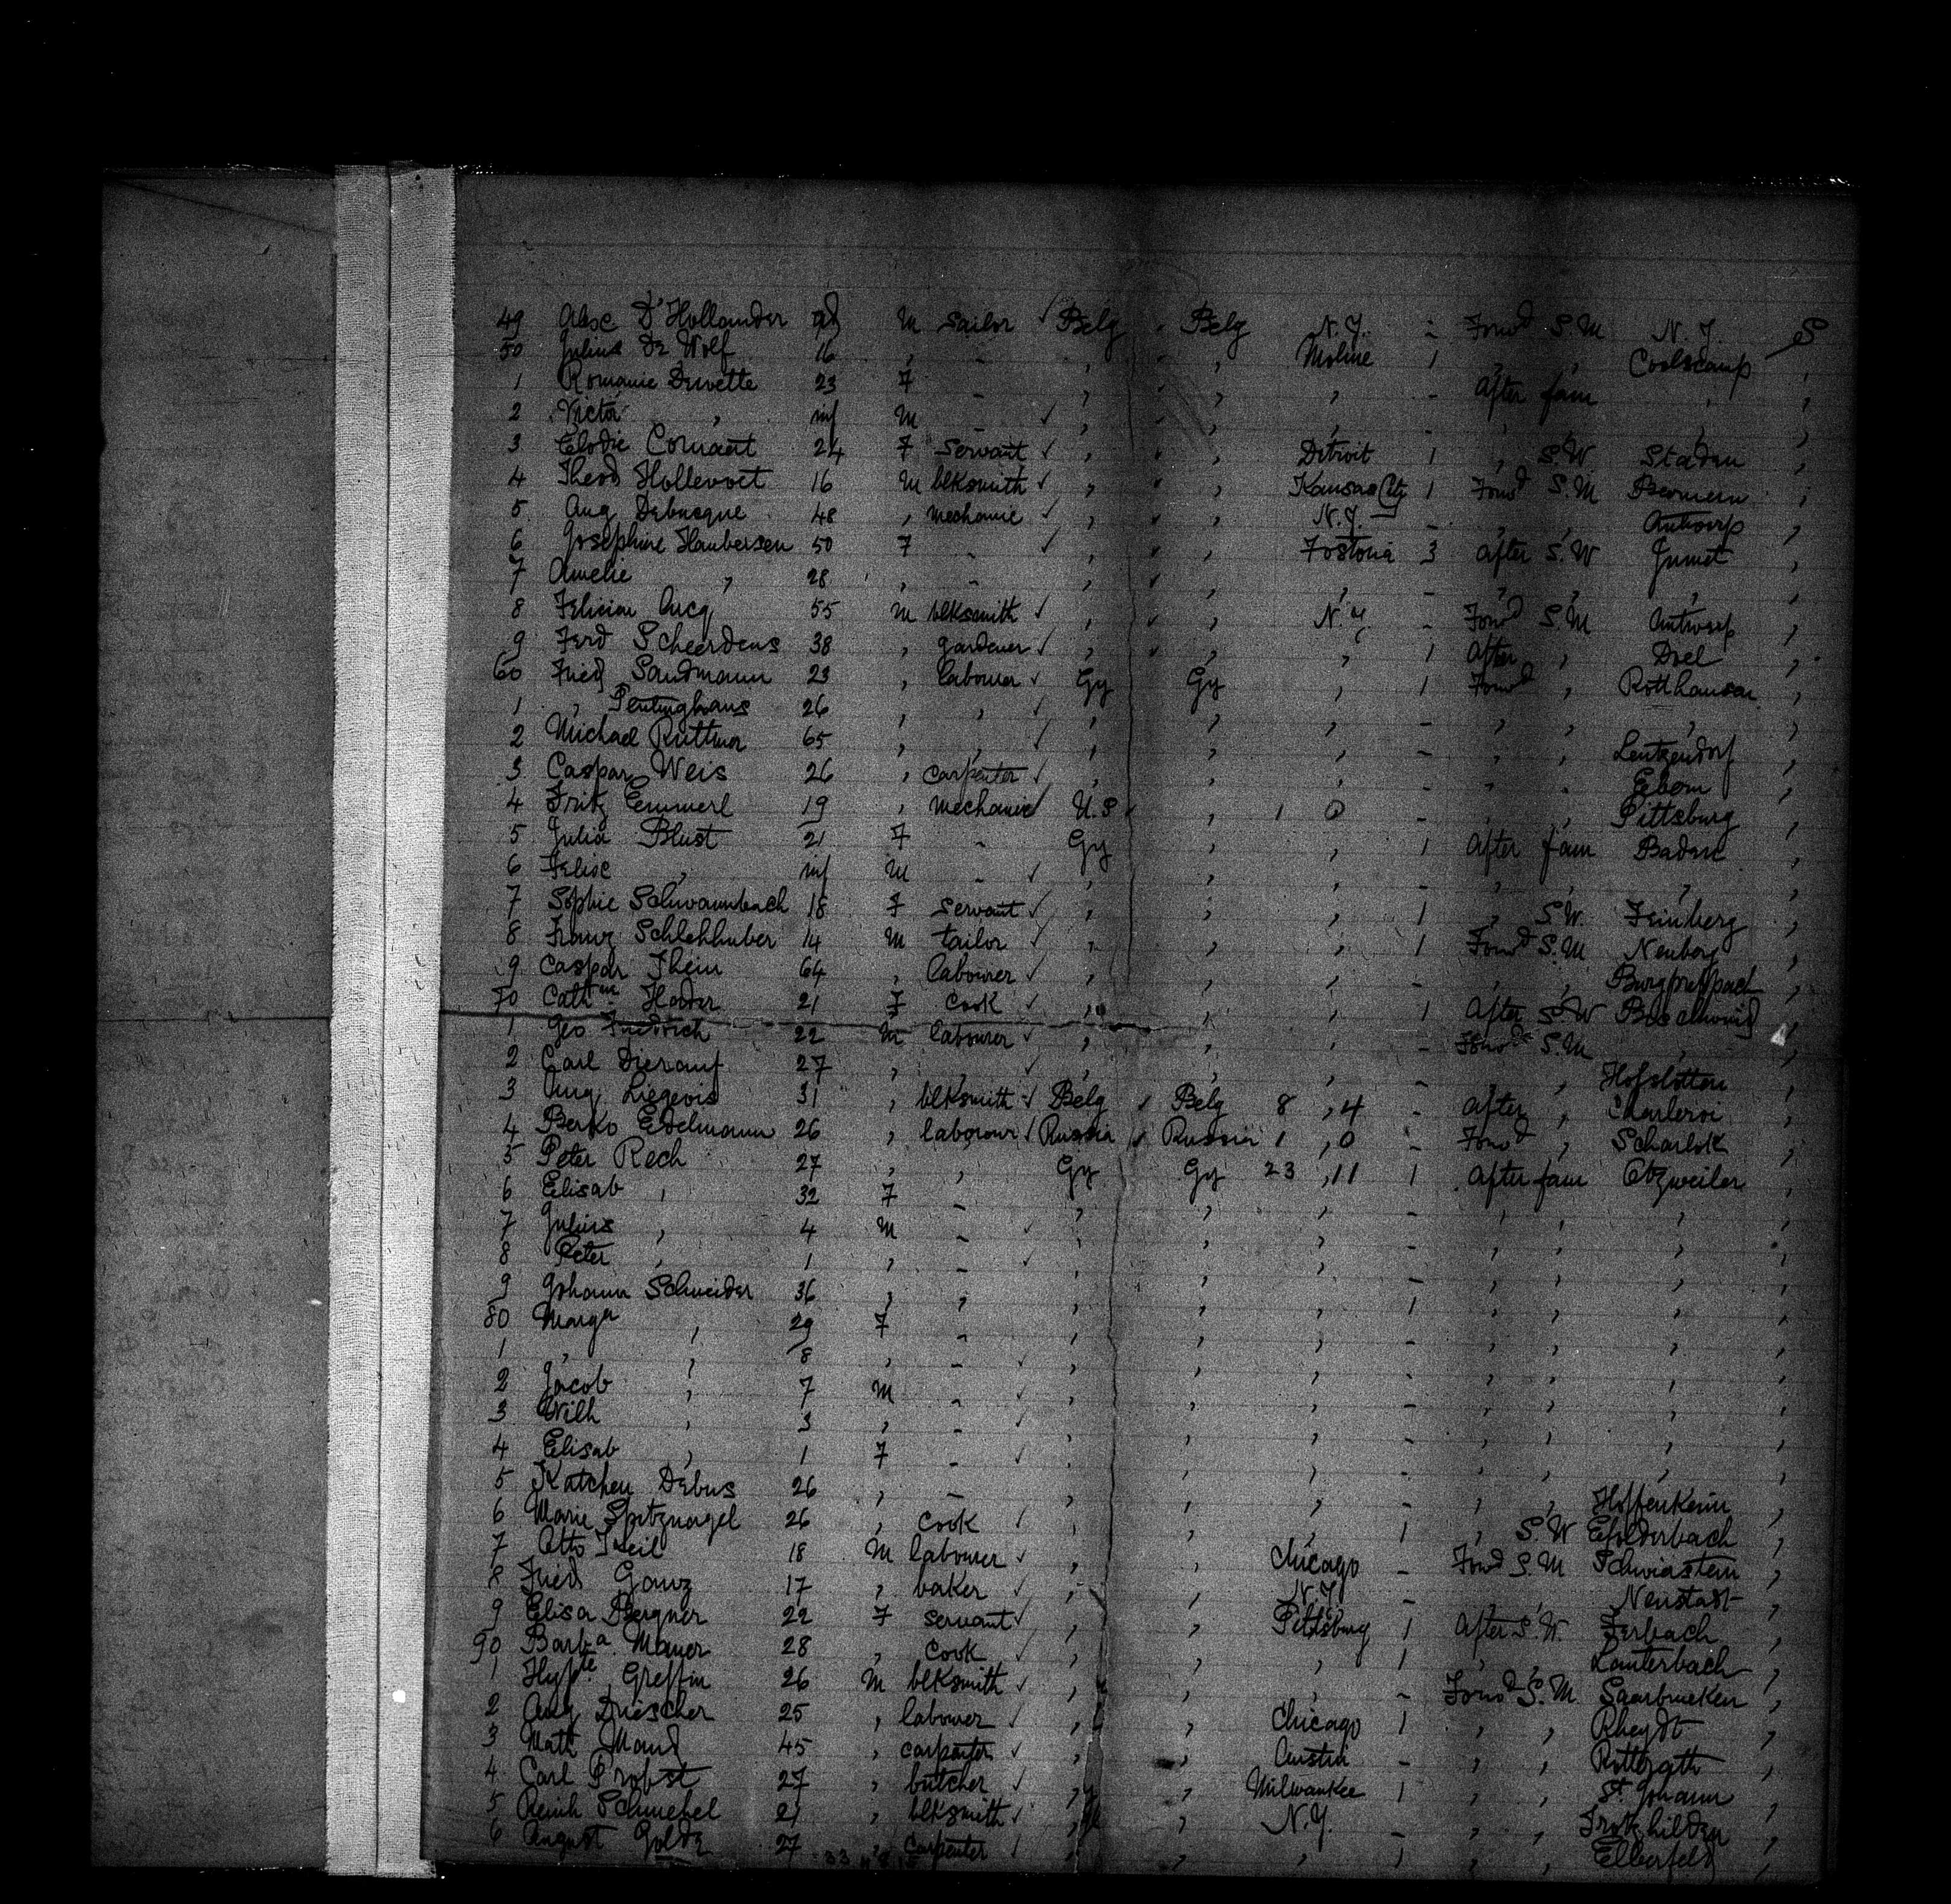 49 Aloe D'Hollander M Sailor ✓ Belg " Belg N.Y. - Forwd S.M N.Y. S
50 Julius De Wolf 16 , - , " , Moline 1 , , Coolscamp ,
1 Romanie Duvette 23 F - , " , , - After fam , ,
2 Victor , inf M - ✓ , " , , - , , , ,
3 Elodie Cornaert 24 F Servant ✓ , " , Detroit 1 , S.W Staden ,
4 Theod Hollevoet 16 M blksmith ✓ , " , Kansas City 1 Forwd S.M ,
5 Aug Debusque 48 , mechanic ✓ , " , N.Y. - , , Antwerp ,
6 Josephine Haubersen 50 F - ✓ , " , Fostoria 3 After S.W Jumet ,
7 Amelie , 28 , - , " , , - , , , ,
8 Felicien 55 M blksmith ✓ , " , N.Y. - Forwd S.M Antwerp ,
9 Ferd Scheerdens 38 , gardener ✓ , " , , 1 After , Doel ,
60 Fried Sandmann 23 , labourer ✓ Gy Gy , 1 Forwd , Rotthausen ,
1 , Pentinghaus 26 , , ✓ , , , - , , , ,
2 Michael Ruttner 65 , , ✓ , , , - , , Lentzendorf ,
3 Caspar Weis 26 , carpenter ✓ , , , - , , Eborn ,
4 Fritz Emmerl 19 , mechanic ✓ U.S , 1 0 - , , Pittsburg ,
5 Julia Blust 21 F - Gy , , 1 After fam Baden ,
6 Felise , inf M - ✓ , , , - , , , ,
7 Sophie Schwanbach 18 F Servant ✓ , , , 1 , S.W. Feinberg ,
8 Franz Schlehhuber 14 M tailor ✓ , , , 1 Forwd S.M Neuberg ,
9 Caspar Thein 64 , labourer ✓ , , , - , , Burgpreppach ,
70 Cathne 21 F Cook ✓ , , , 1 After S.W ,
1 Geo Friedrich 22 M labourer ✓ , , , - Forwd S.M , ,
2 Carl Dierauf 27 , , ✓ , , , - , , Hofstetten ,
3 Aug Liegeois 31 , blksmith ✓ Belg ✓ Belg 8 , 4 - After , Charleroi ,
4 Berko Edelmann 26 , labourer ✓ Russia ✓ Russia 1 , 0 - Forwd , Scharlok ,
5 Peter Rech 27 , , Gy Gy 23 , 11 1 After fam Otzweiler ,
6 Elisab , 32 F - , , , - , , , ,
7 Julius , 4 M - ✓ , , , - , , , ,
8 Peter , 1 , - ✓ , , , - , , , ,
9 Johann Schneider 36 , , , , , 1 , , , ,
80 Marga , 29 F - , , , - , , , ,
1 , , 8 , - ✓ , , , - , , , ,
2 Jacob , 7 M - ✓ , , , - , , , ,
3 Wilh , 3 , - ✓ , , , - , , , ,
4 Elisab , 1 F - ✓ , , , - , , , ,
5 Katchen Debus 26 , - , , , - , , ,
6 Marie Spitznagel 26 , Cook ✓ , , , 1 , S.W ,
7 Otto Theil 18 M labourer ✓ , , Chicago - Forwd S.M ,
8 Fried Ganz 17 , baker ✓ , , N.Y. - , , Neustadt ,
9 Elisa Bergner 22 F servant ✓ , , Pittsburg 1 After S.W. Ferbach ,
90 Barba Mauer 28 , Cook ✓ , , , 1 , , Lauterbach ,
1 Hypte Greffin 26 M blksmith ✓ , , , - Forwd S.M. Saarbrucken ,
2 Aug Driescher 25 , labourer ✓ , , Chicago 1 , , Rheydt ,
3 Math Maus 45 , carpenter ✓ , , Austria - , , Rottgath ,
4 Carl Probst 27 , butcher ✓ , , Milwaukee 1 , , St. Johann ,
5 Reinh Schnebel 21 , blksmith ✓ , , N.Y. - , , ,
6 August Goldz 27 , carpenter ✓ , , , 1 , , Elberfeld ,